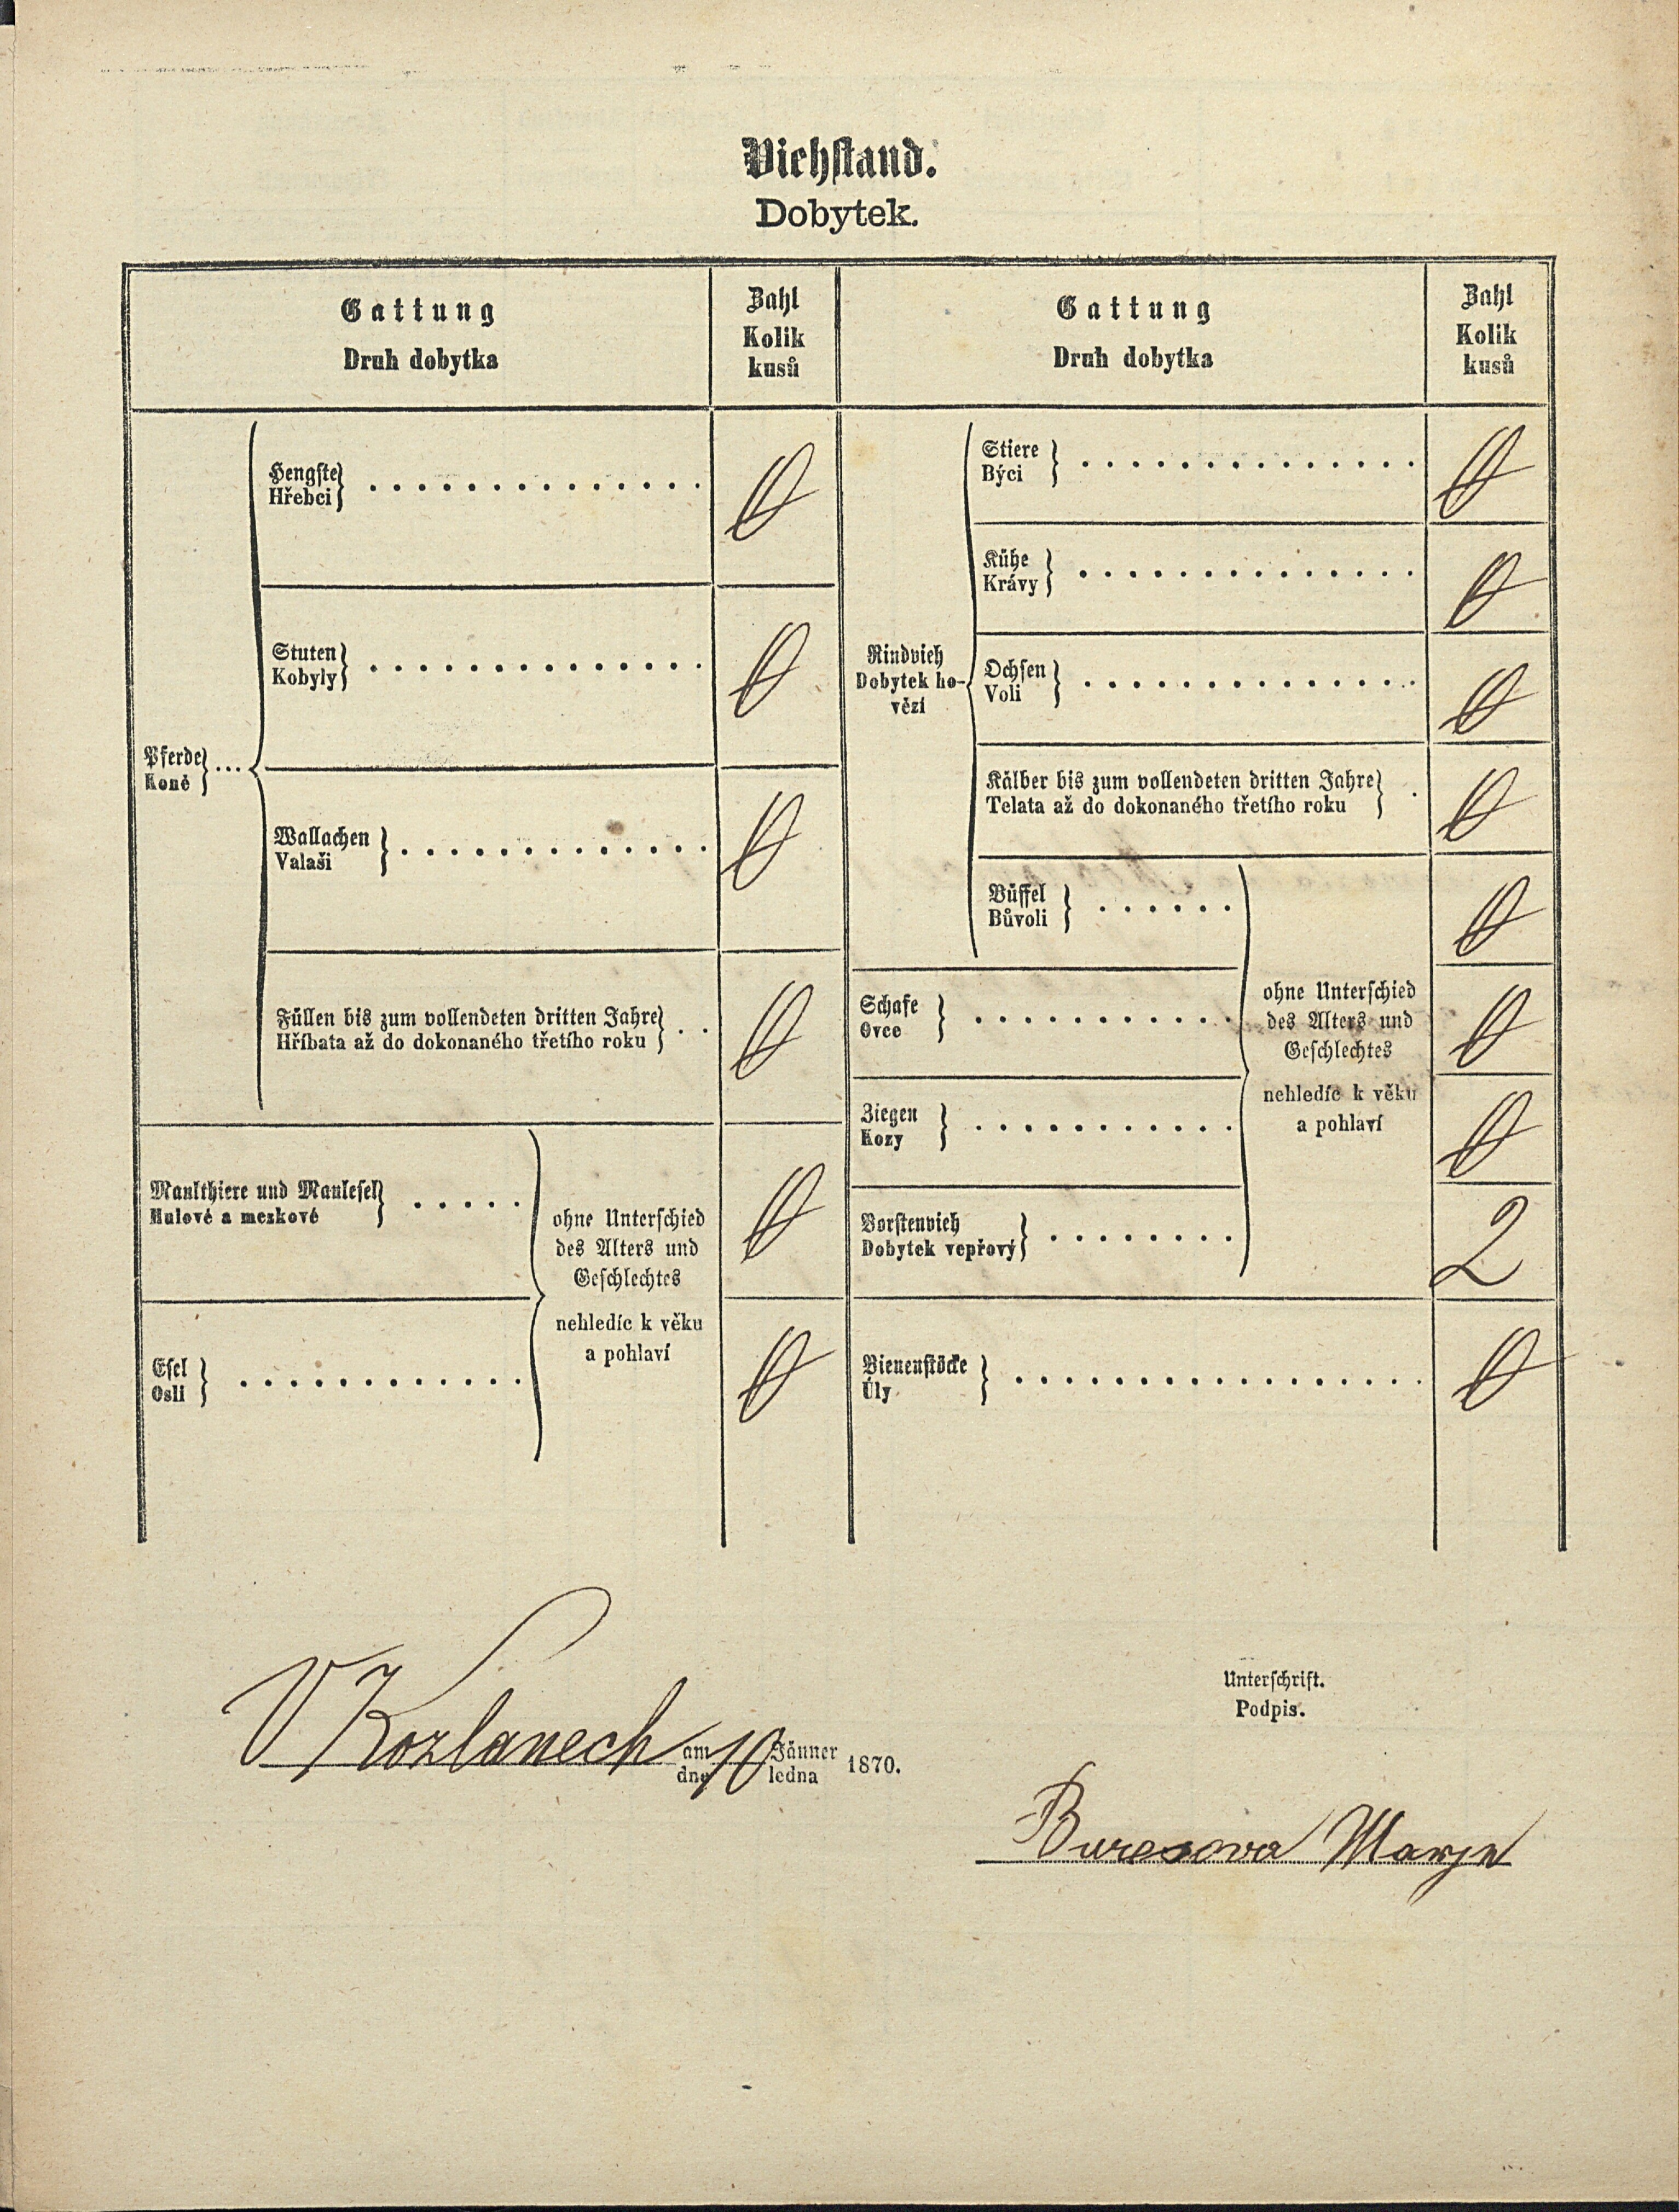 Viehstand.
Dobytek.
Gattung
Druh dobytka
Zahl
Kolik
kusů
Gattung
Druh dobytka
Zahl
Kolik
kusů
Pferde
Koně
Hengste
Hřebci
0
Stuten
Kobyly
0
Wallachen
Valaši
0
Füllen bis zum vollendeten dritten Jahre
Hříbata až do dokonaného třetího roku
0
Maulthiere und Maulesel
Mulové a mezkové
0
Esel
Osli
0
ohne Unterschied
des Alters und
Geschlechtes
nehledíc k věku
a pohlaví
Rindvieh
Dobytek ho-
vězí
Stiere
Býci
0
Kühe
Krávy
0
Ochsen
Voli
0
Kälber bis zum vollendeten dritten Jahre
Telata až do dokonaného třetího roku
0
Büffel
Bůvoli
0
Schafe
Ovce
0
Ziegen
Kozy
0
Borstenvieh
Dobytek vepřový
2
ohne Unterschied
des Alters und
Geschlechtes
nehledíc k věku
a pohlaví
Bienenstöcke
Úly
0
V Kozlanech am 10 Jänner 1870.
dne ledna
Unterschrift.
Podpis.
Buresova Marye